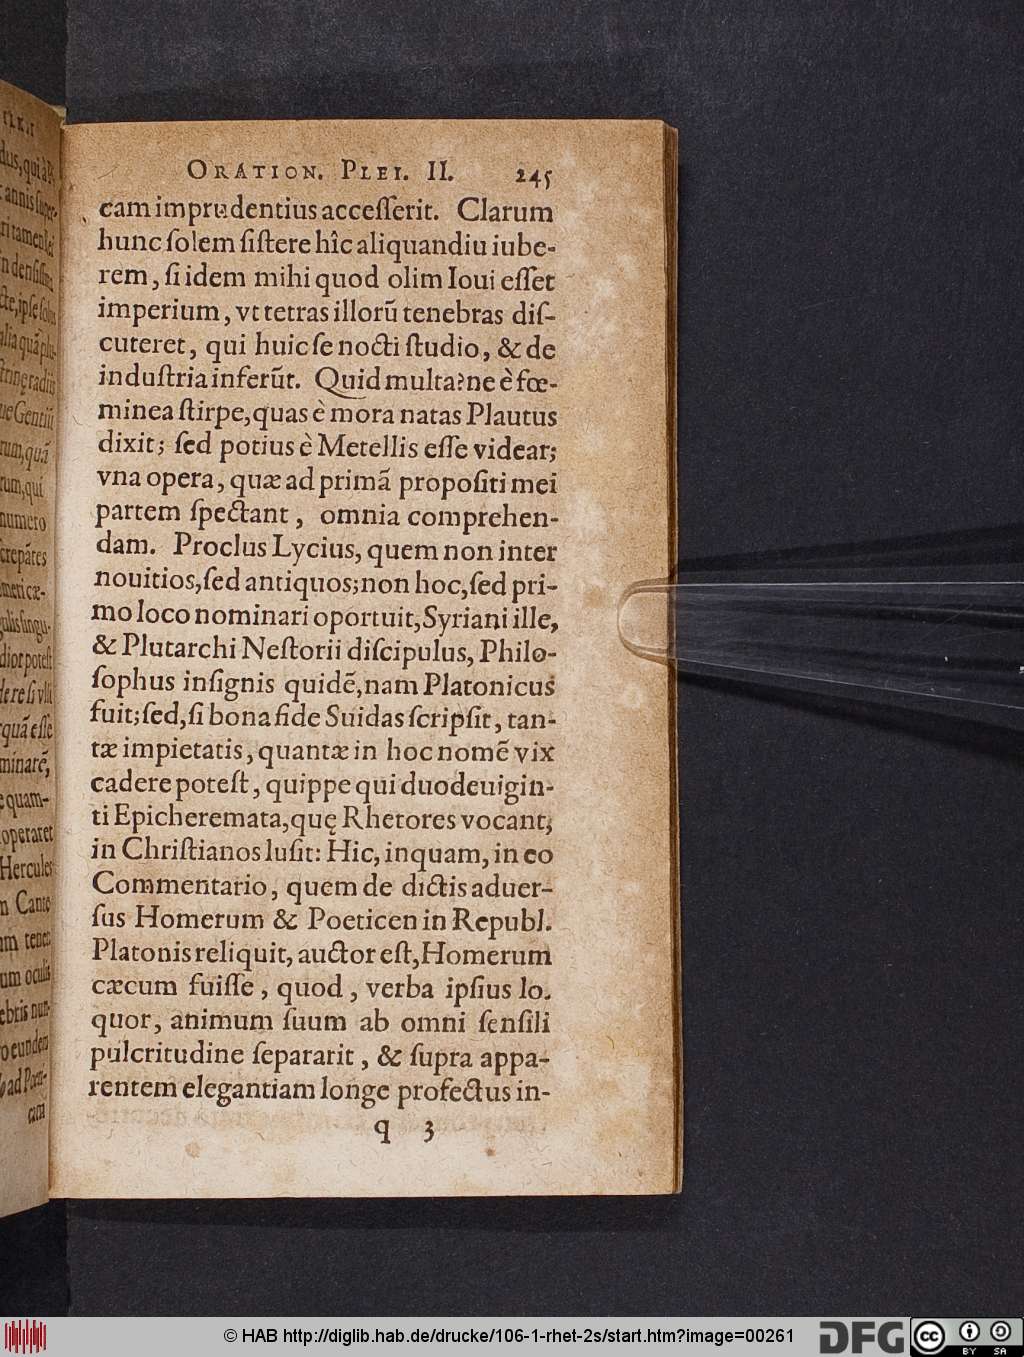 ORATION. PLEI. II. 245
cam imprudentius accesserit. Clarum
hunc solem sistere hîc aliquandiu iube-
rem, si idem mihi quod olim Ioui esset
imperium, vt tetras illorũ tenebras dis-
cuteret, qui huic se nocti studio, & de
industria inferũt. Quid multa? ne è fœ-
minea stirpe, quas è mora natas Plautus
dixit; sed potius è Metellis esse videar;
vna opera, quæ ad primã propositi mei
partem spectant, omnia comprehen-
dam. Proclus Lycius, quem non inter
nouitios, sed antiquos; non hoc, sed pri-
mo loco nominari oportuit, Syriani ille,
& Plutarchi Nestorii discipulus, Philo-
sophus insignis quidẽ, nam Platonicus
fuit; sed, si bona fide Suidas scripsit, tan-
tæ impietatis, quantæ in hoc nomẽ vix
cadere potest, quippe qui duodeuigin-
ti Epicheremata, quę Rhetores vocant,
in Christianos lusit: Hic, inquam, in eo
Commentario, quem de dictis aduer-
sus Homerum & Poeticen in Republ.
Platonis reliquit, auctor est, Homerum
cæcum fuisse, quod, verba ipsius lo.
quor, animum suum ab omni sensili
pulcritudine separarit, & supra appa-
rentem elegantiam longe profectus in-
q 3
qui à
annis super-
ri tamen
densissim
cte, ipse
alia quã
radiis
ue Gentiũ
rum, quã
rum, qui
numero
crepãtes
mericæ-
gulis singu-
dior potest
dere si vlli
quã esse
minarẽ,
e quam-
operaret
Hercules
n Cante
um tenen
um oculis
ebris nun-
o eundem
o ad Poeti-
cam
© HAB http://diglib.hab.de/drucke/106-1-rhet-2s/start.htm?image=00261
DFG
cc
BY SA